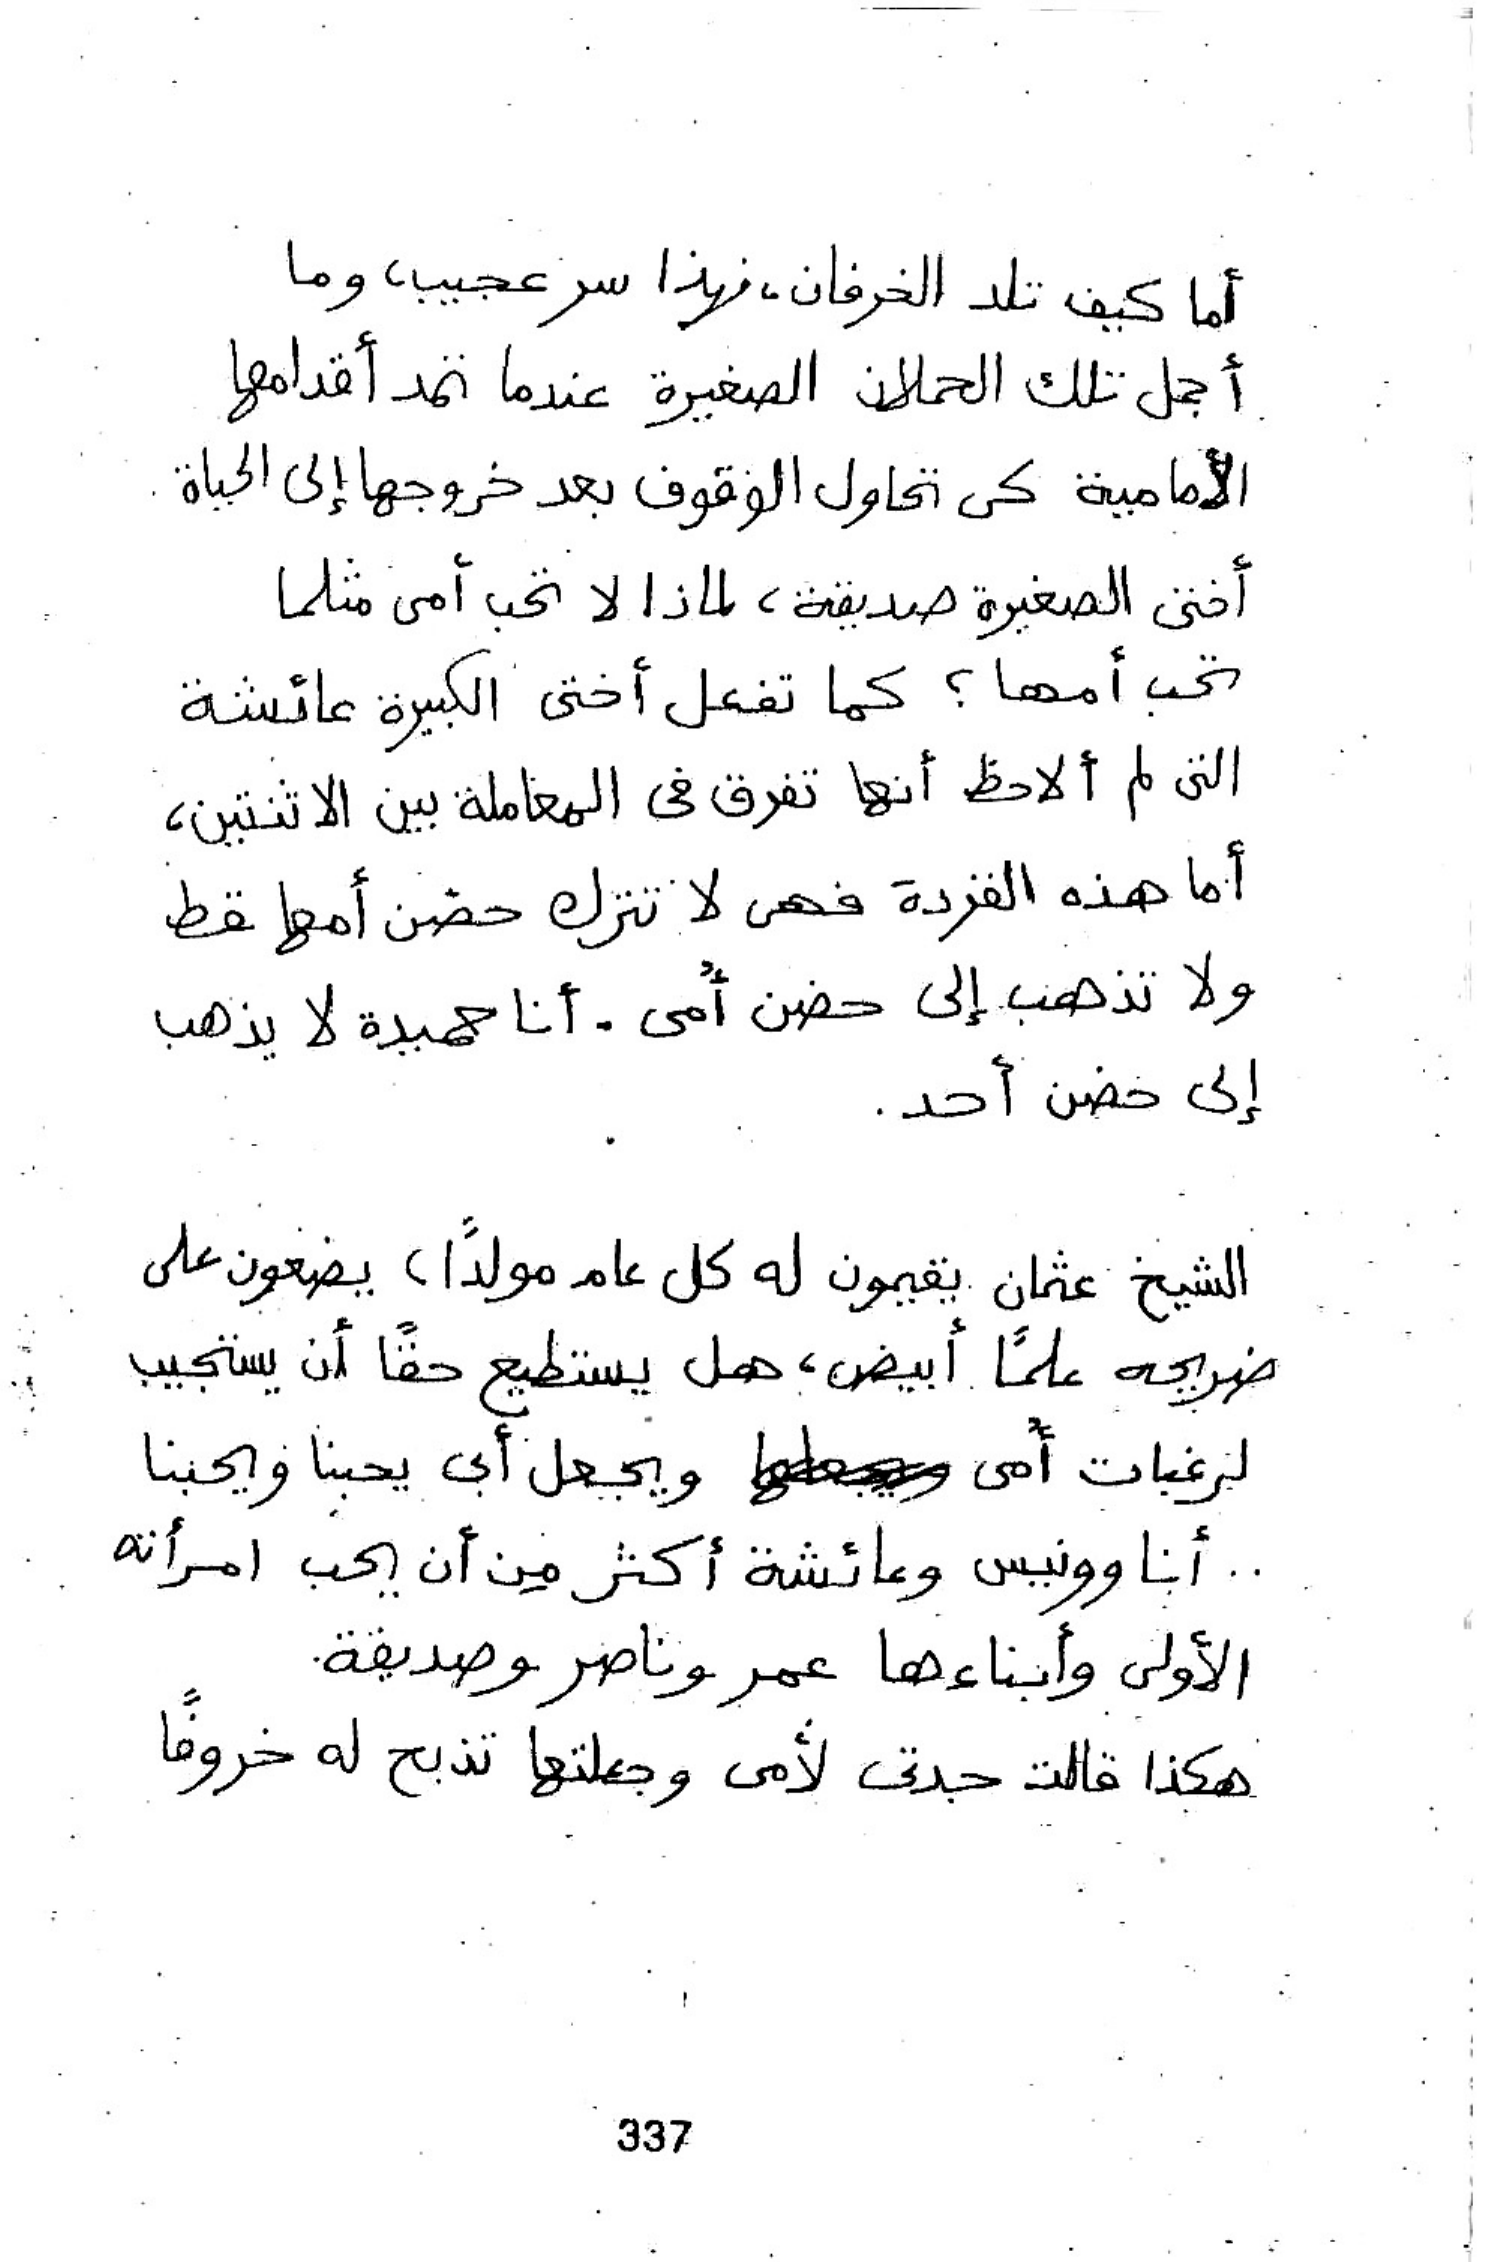 أما كيف تلد الخرفان، فهذا سر عجيب، وما
أجمل تلك الحملان الصغيرة عندما تمد أقدامها
الأمامية كى تحاول الوقوف بعد خروجها إلى الحياة.
أختى الصغيرة صديقة، لماذا لا تحب أمى مثلما
تحب أمها؟ كما تفعل أختى الكبيرة عائشة
التى لم ألاحظ أنها تفرق فى المعاملة بين الاثنتين،
أما هذه القردة فهى لا تترك حضن أمها قط
ولا تذهب إلى حضن أُمى. أنا حميدة لا يذهب
إلى حضن أحد.
الشيخ عثمان يقيمون له كل عام مولدًا، يضعون على
ضريحه علمًا أبيض، هل يستطيع حقًا أن يستجيب
لرغبات أُمى ويجعل أبى يحبنا ويحبنا
.. أنا وونيس وعائشة أكثر من أن يحب امرأته
الأولى وأبناءها عمر وناصر وصديقة.
هكذا قالت جدتى لأمى وجعلتها تذبح له خروفًا
337